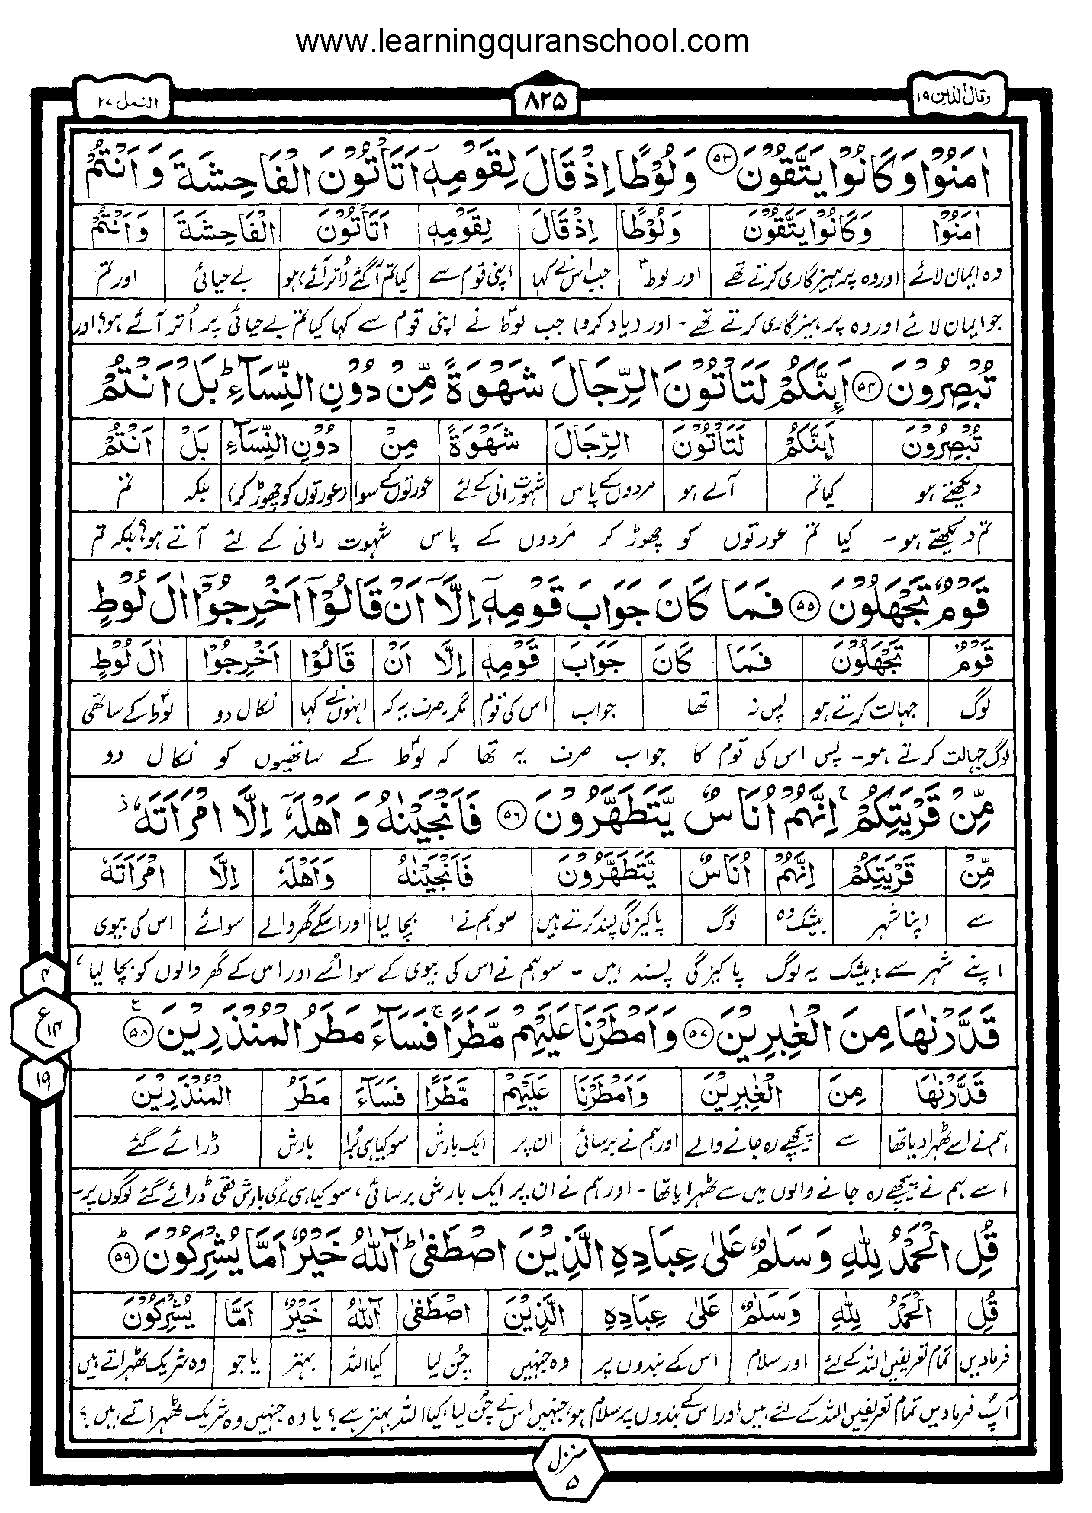 www.learningquranschool.com
وقال الذين ١٩
٨٢٥
النمل ٢٧
اٰمَنُوْا وَكَانُوْا يَتَّقُوْنَ ۝٥٣ وَلُوْطًا اِذْ قَالَ لِقَوْمِهٖٓ اَتَاْتُوْنَ الْفَاحِشَةَ وَاَنْتُمْ
اٰمَنُوْا وَكَانُوْا يَتَّقُوْنَ وَلُوْطًا اِذْ قَالَ لِقَوْمِهٖٓ اَتَاْتُوْنَ الْفَاحِشَةَ وَاَنْتُمْ
وہ ایمان لائے اور وہ پرہیزگاری کرتے تھے اور لوط جب اس نے کہا اپنی قوم سے کیا تم آگئے اُتر آئے ہو بے حیائی اور تم
جو ایمان لائے اور وہ پرہیزگاری کرتے تھے۔ اور (یاد کرو) جب لوط نے اپنی قوم سے کہا کیا تم بے حیائی پر اُتر آئے ہو؟ اور
تُبْصِرُوْنَ ۝٥٤ اَىِٕنَّكُمْ لَتَاْتُوْنَ الرِّجَالَ شَهْوَةً مِّنْ دُوْنِ النِّسَآءِ ؕ بَلْ اَنْتُمْ
تُبْصِرُوْنَ اَىِٕنَّكُمْ لَتَاْتُوْنَ الرِّجَالَ شَهْوَةً مِنْ دُوْنِ النِّسَآءِ بَلْ اَنْتُمْ
دیکھتے ہو کیا تم آتے ہو مردوں کے پاس شہوت رانی کے لئے عورتوں کے سوا (عورتوں کو چھوڑ کر) بلکہ تم
تم دیکھتے ہو۔ کیا تم عورتوں کو چھوڑ کر مردوں کے پاس شہوت رانی کے لئے آتے ہو؟ بلکہ تم
قَوْمٌ تَجْهَلُوْنَ ۝٥٥ فَمَا كَانَ جَوَابَ قَوْمِهٖٓ اِلَّآ اَنْ قَالُوْٓا اَخْرِجُوْٓا اٰلَ لُوْطٍ
قَوْمٌ تَجْهَلُوْنَ فَمَا كَانَ جَوَابَ قَوْمِهٖٓ اِلَّآ اَنْ قَالُوْا اَخْرِجُوْا اٰلَ لُوْطٍ
لوگ جہالت کرتے ہو پس نہ تھا جواب اس کی قوم مگر۔ صرف یہ کہ انہوں نے کہا نکال دو لوط کے ساتھی
لوگ جہالت کرتے ہو۔ پس اس کی قوم کا جواب صرف یہ تھا کہ لوط کے ساتھیوں کو نکال دو
مِّنْ قَرْيَتِكُمْ ۚ اِنَّهُمْ اُنَاسٌ يَّتَطَهَّرُوْنَ ۝٥٦ فَاَنْجَيْنٰهُ وَاَهْلَهٗٓ اِلَّا امْرَاَتَهٗ ؗ
مِّنْ قَرْيَتِكُمْ اِنَّهُمْ اُنَاسٌ يَّتَطَهَّرُوْنَ فَاَنْجَيْنٰهُ وَاَهْلَهٗٓ اِلَّا امْرَاَتَهٗ
سے اپنا شہر بیشک وہ لوگ پاکیزگی پسند کرتے ہیں سو ہم نے بچا لیا اور اسکے گھر والے سوائے اس کی بیوی
اپنے شہر سے، بیشک یہ لوگ پاکیزگی پسند ہیں۔ سو ہم نے اس کی بیوی کے سوائے اور اس کے گھر والوں کو بچا لیا،
قَدَّرْنٰهَا مِنَ الْغٰبِرِيْنَ ۝٥٧ وَاَمْطَرْنَا عَلَيْهِمْ مَّطَرًا ۚ فَسَآءَ مَطَرُ الْمُنْذَرِيْنَ ۝٥٨ ع
قَدَّرْنٰهَا مِنَ الْغٰبِرِيْنَ وَاَمْطَرْنَا عَلَيْهِمْ مَّطَرًا فَسَآءَ مَطَرُ الْمُنْذَرِيْنَ
ہم نے اسے ٹھہرا دیا تھا سے پیچھے رہ جانے والے اور ہم نے برسائی ان پر ایک بارش سو کیا ہی بُرا بارش ڈرائے گئے
اسے ہم نے پیچھے رہ جانے والوں میں سے ٹھہرایا تھا۔ اور ہم نے ان پر ایک بارش برسائی، سو کیا ہی بُری بارش تھی ڈرائے گئے لوگوں پر۔
٤
ع ١٤
١٩
قُلِ الْحَمْدُ لِلّٰهِ وَسَلٰمٌ عَلٰى عِبَادِهِ الَّذِيْنَ اصْطَفٰى ؕ آٰللّٰهُ خَيْرٌ اَمَّا يُشْرِكُوْنَ ؕ ۝٥٩
قُلِ الْحَمْدُ لِلّٰهِ وَسَلٰمٌ عَلٰى عِبَادِهِ الَّذِيْنَ اصْطَفٰى آٰللّٰهُ خَيْرٌ اَمَّا يُشْرِكُوْنَ
فرما دیں تمام تعریفیں اللہ کے لئے اور سلام اس کے بندوں پر وہ جنہیں چُن لیا کیا اللہ بہتر یا جو وہ شریک ٹھہراتے ہیں
آپ فرما دیں تمام تعریفیں اللہ کے لئے ہیں اور اس کے بندوں پر سلام ہو، جنہیں اس نے چُن لیا، کیا اللہ بہتر ہے؟ یا وہ جنہیں وہ شریک ٹھہراتے ہیں؟
منزل ٥